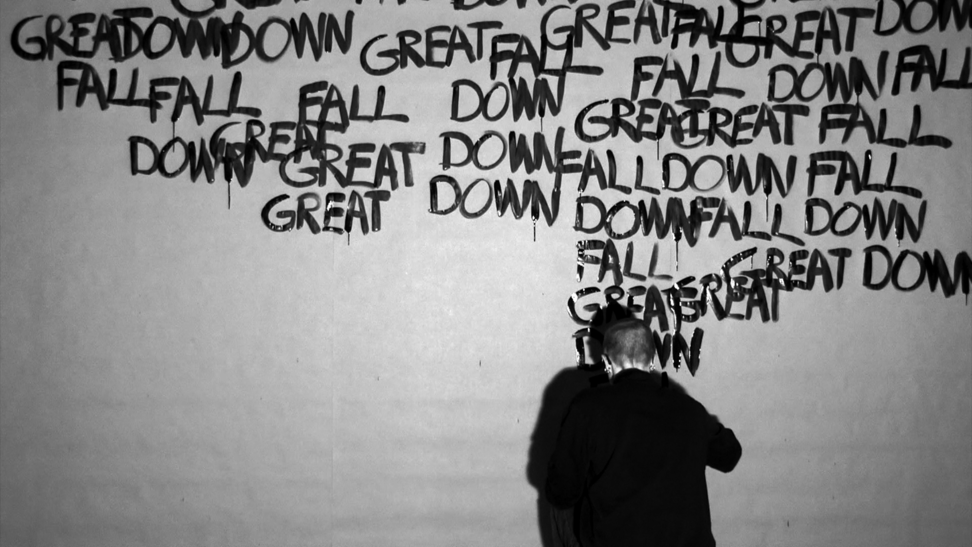 GREAT DOWN DOWN GREAT FALL GREAT FALL GREAT DOWN
FALL FALL FALL DOWN FALL DOWN FALL
GREAT GREAT FALL
DOWN GREAT GREAT DOWN FALL DOWN FALL
GREAT DOWN DOWN FALL DOWN
FALL GREAT DOWN
GREAT GREAT